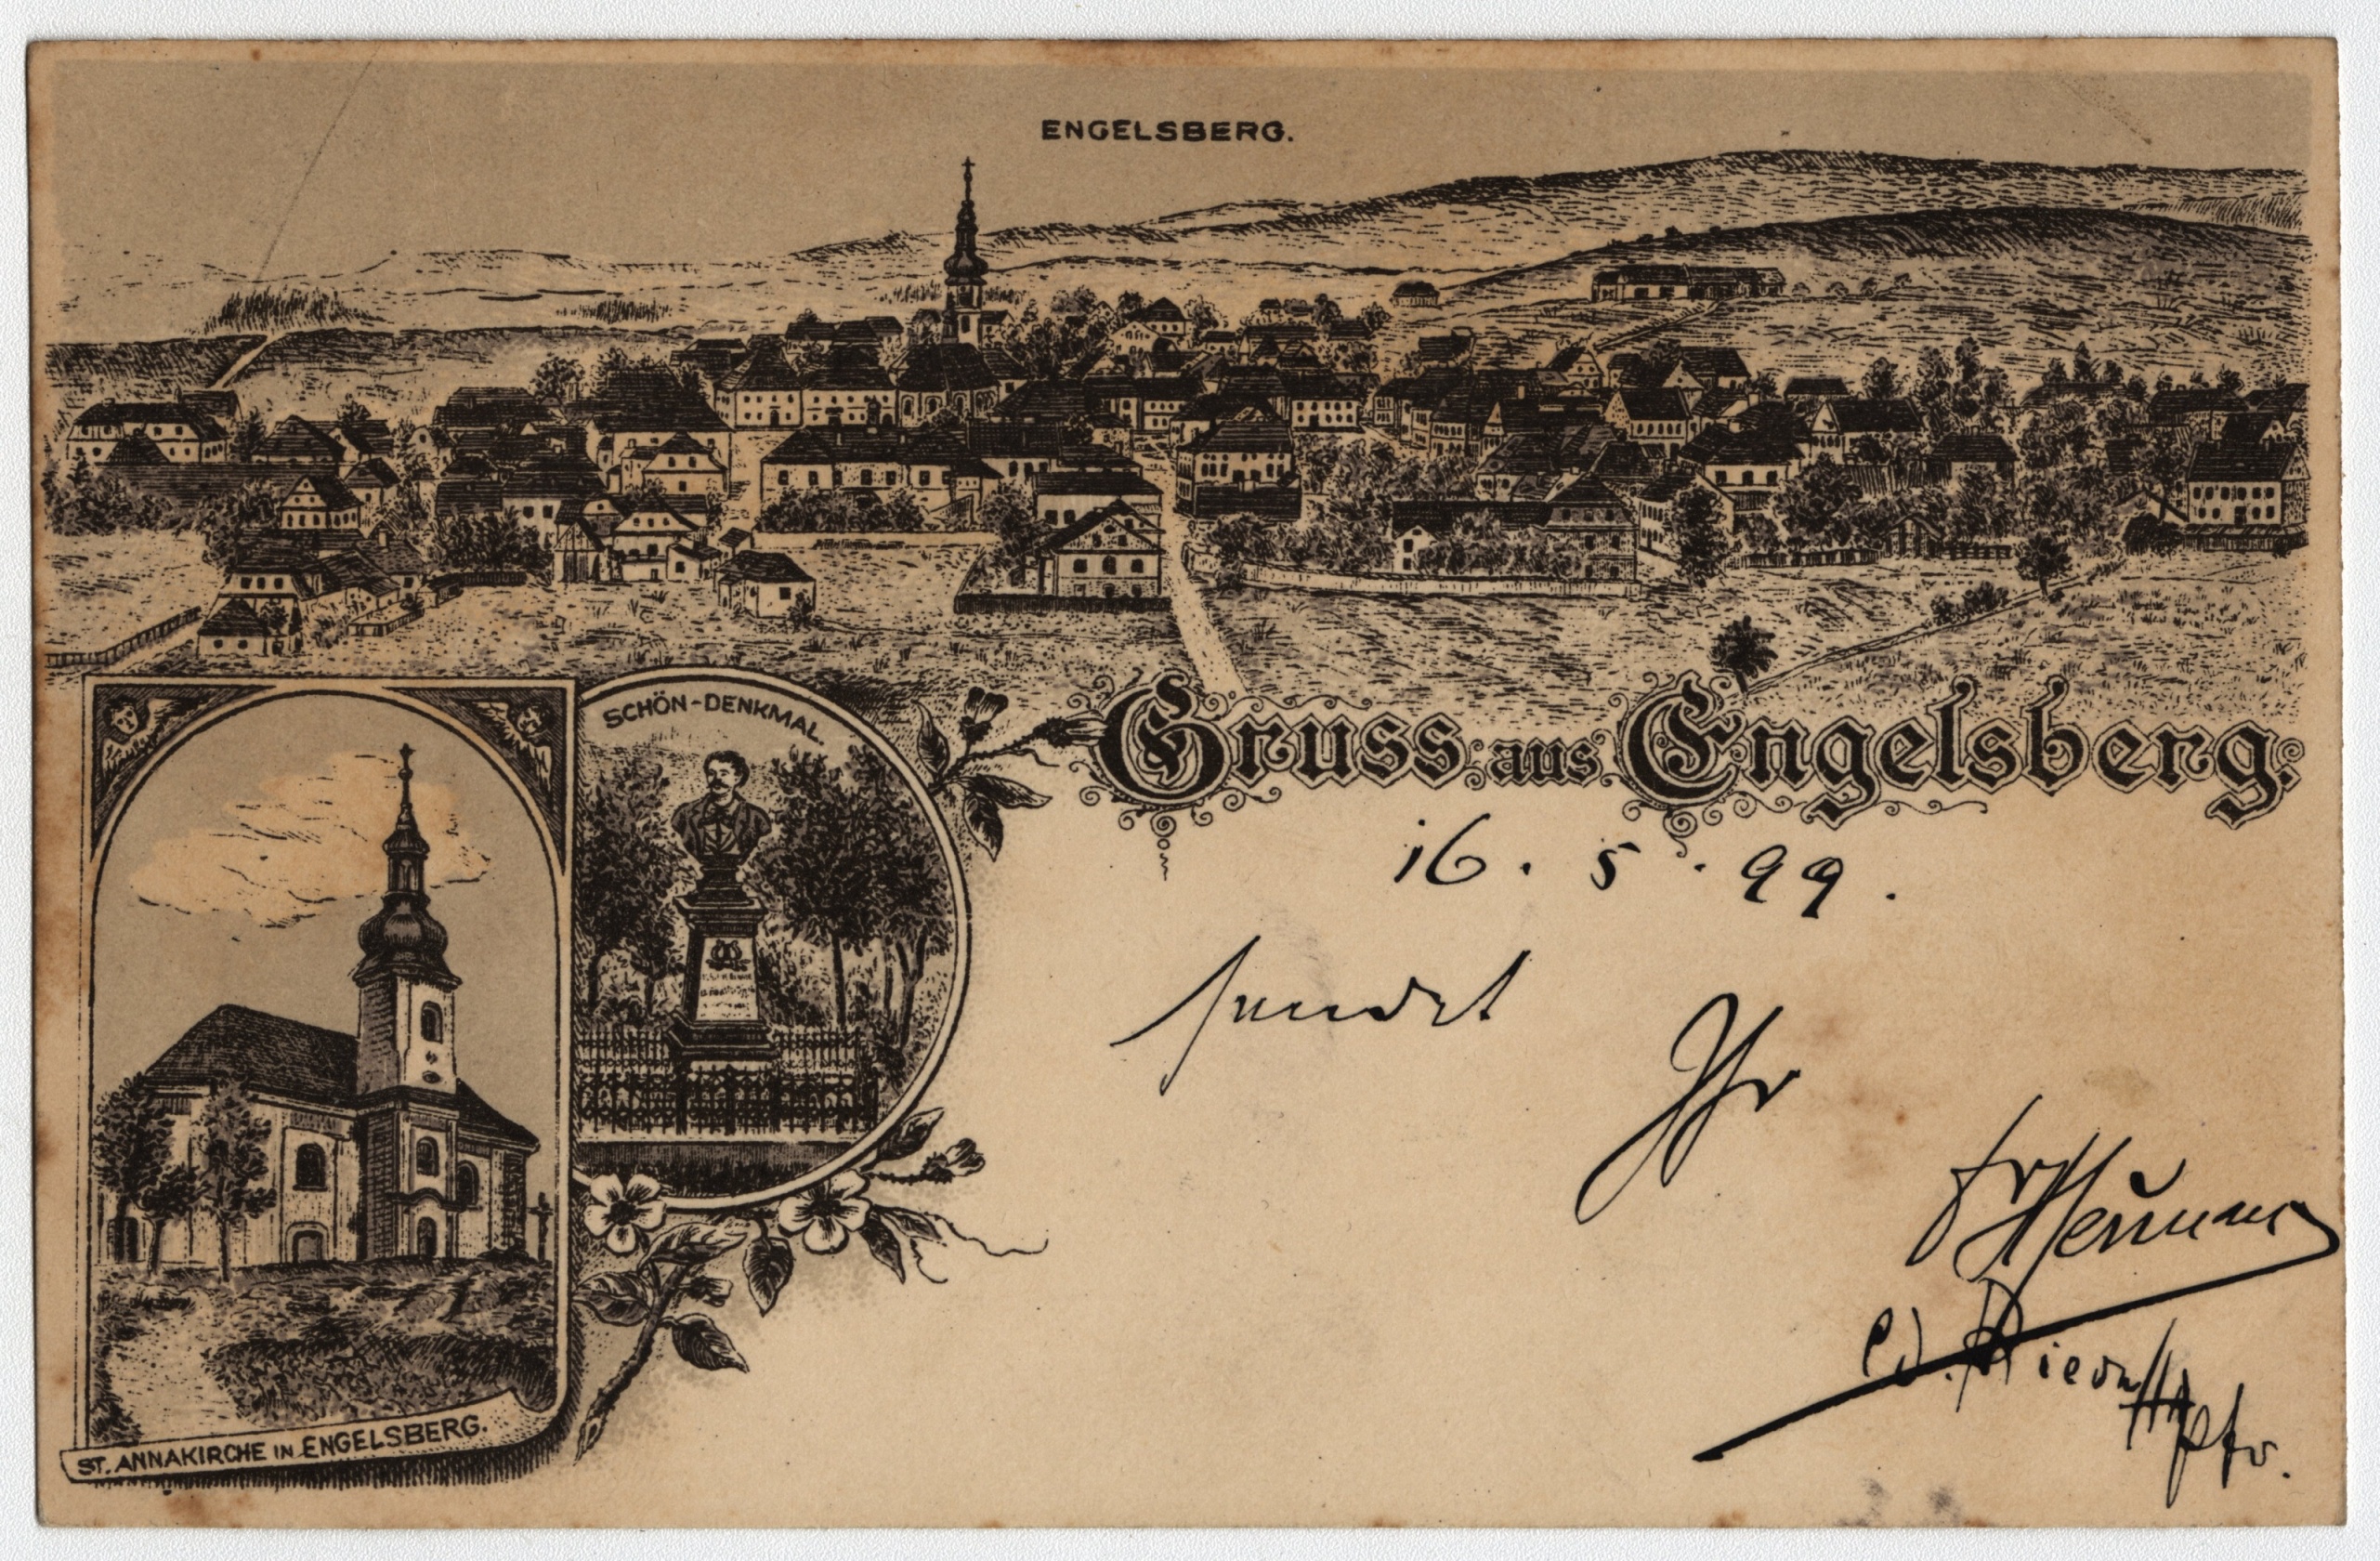 ENGELSBERG.
SCHÖN-DENKMAL.
Gruss aus Engelsberg.
16. 5. 99.
sendet
Ihr
ST. ANNAKIRCHE IN ENGELSBERG.